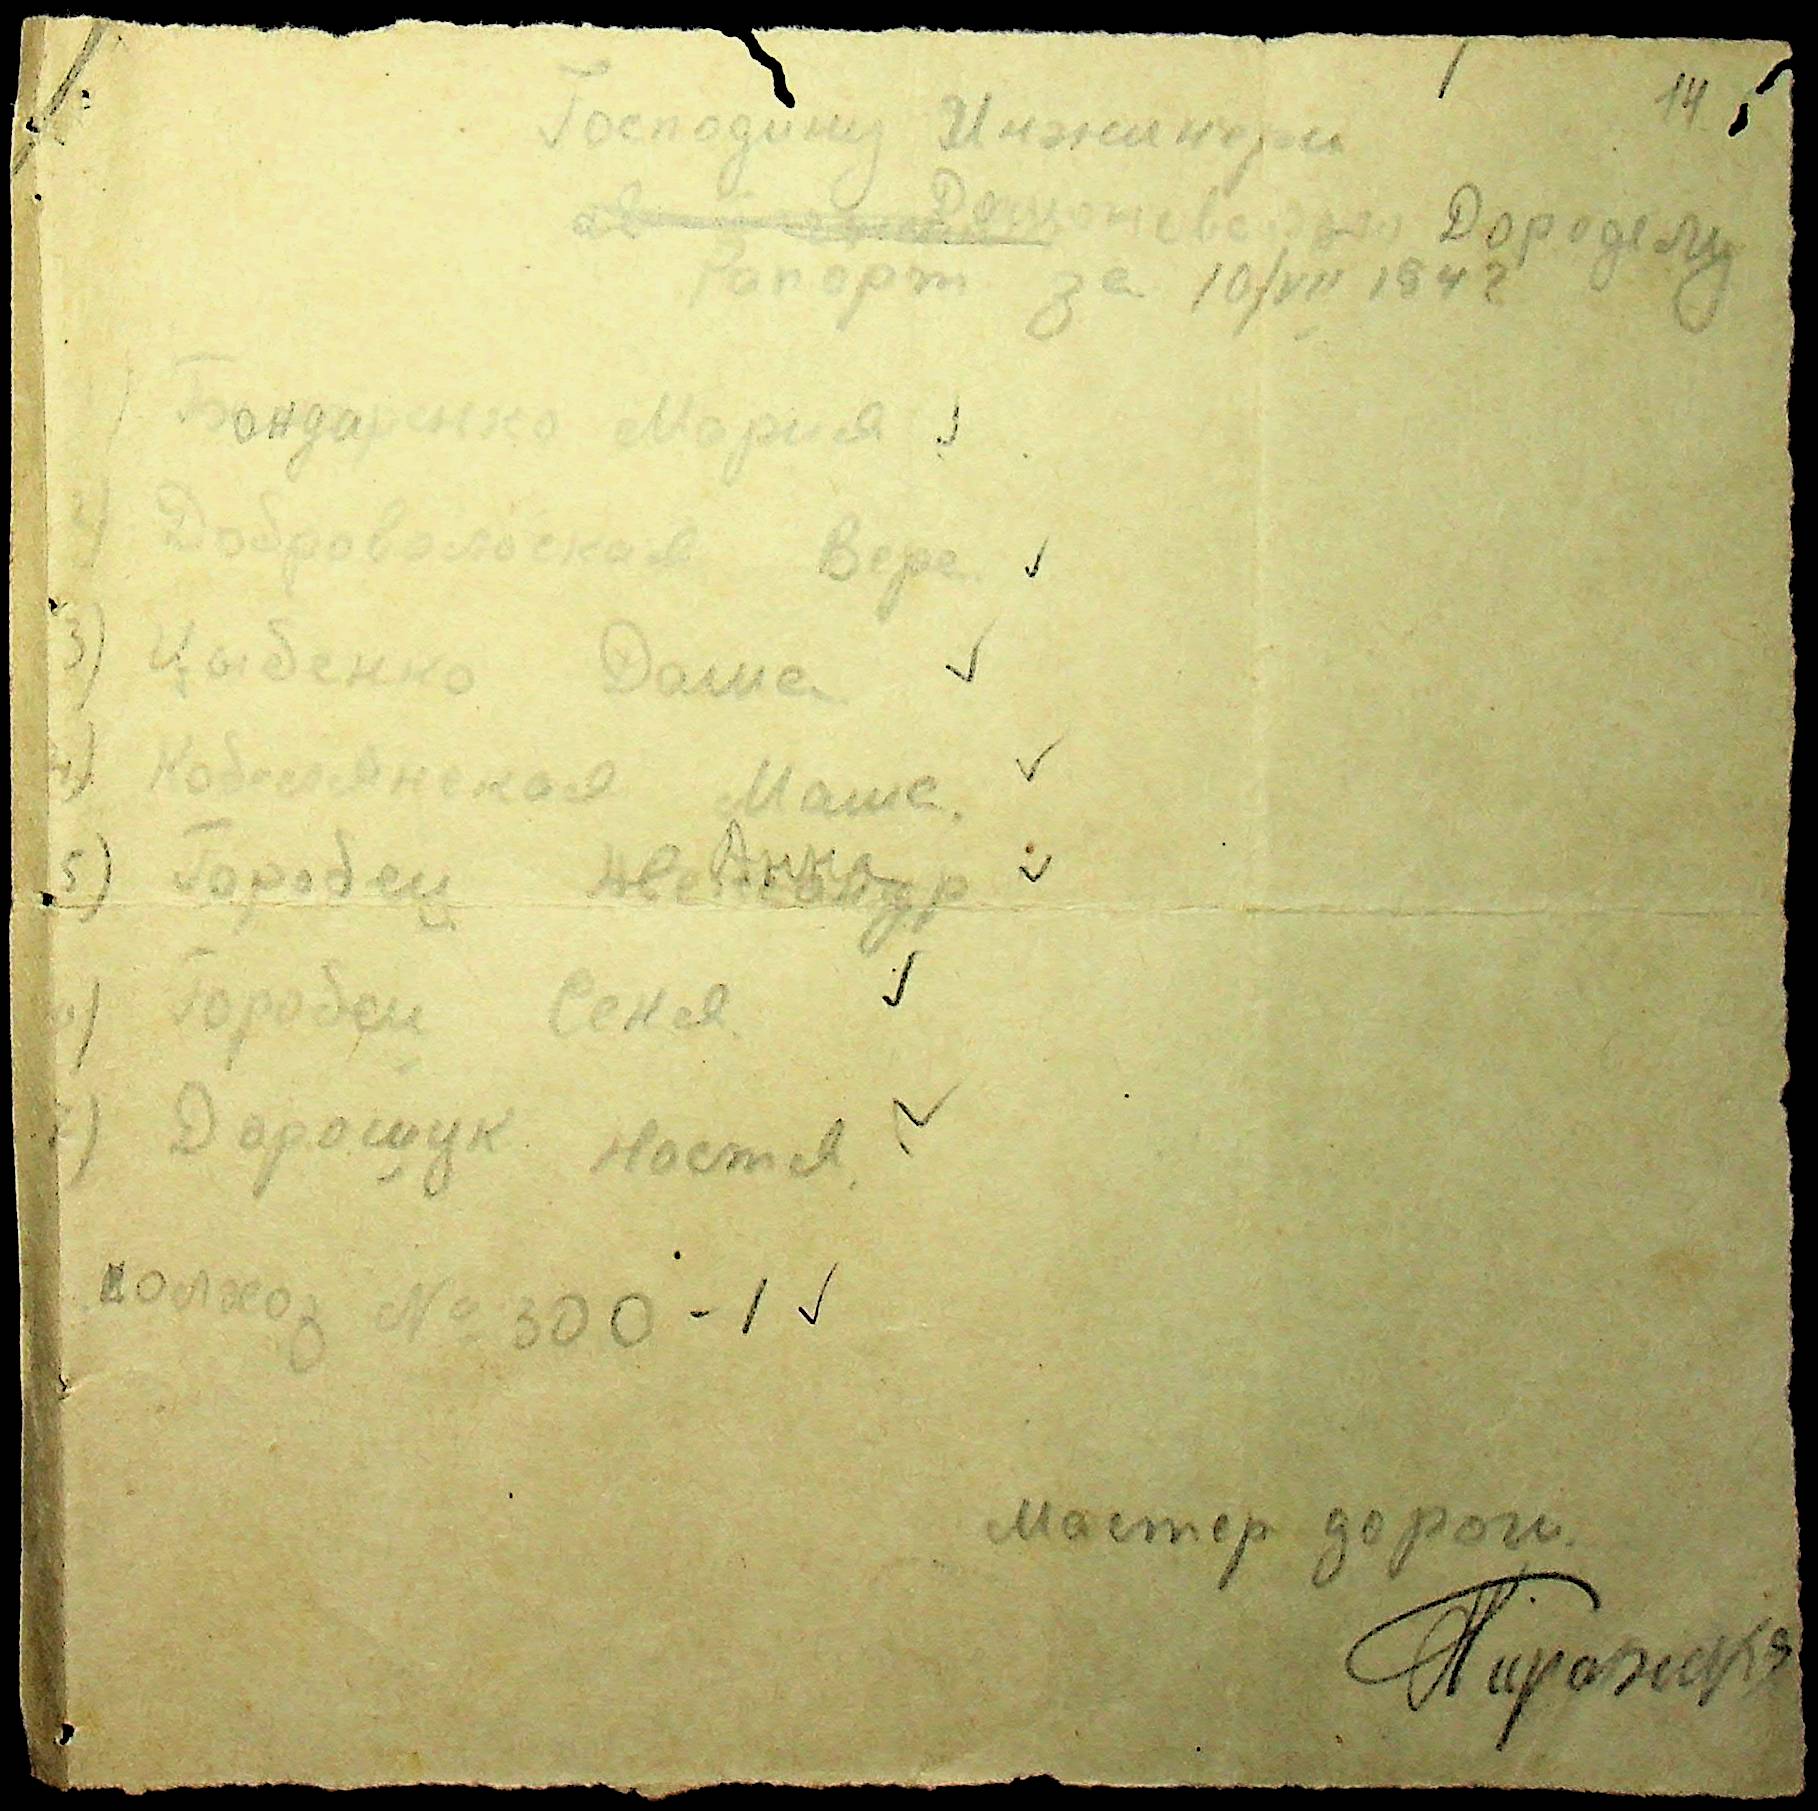 14
Господину Инжинеру
Дороделу
Рапорт за 10/VII 1942
1) Бондаренко Мария ✓
2) Добровольская Вера ✓
3) Цыбенко Даша ✓
4) Кобылянская Маша. ✓
5) Горобец Анна ✓
6) Горобец Сеня ✓
7) Дорощук Настя. ✓
колхоз № 300 - 1 ✓
Мастер дороги.